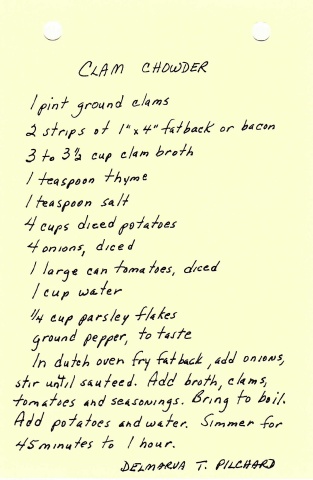 CLAM CHOWDER
1 pint ground clams
2 strips of 1" x 4" fatback or bacon
3 to 3½ cup clam broth
1 teaspoon thyme
1 teaspoon salt
4 cups diced potatoes
4 onions, diced
1 large can tomatoes, diced
1 cup water
¼ cup parsley flakes
ground pepper, to taste
In dutch oven fry fatback, add onions,
stir until sauteed. Add broth, clams,
tomatoes and seasonings. Bring to boil.
Add potatoes and water. Simmer for
45 minutes to 1 hour.
DELMARVA T. PILCHARD